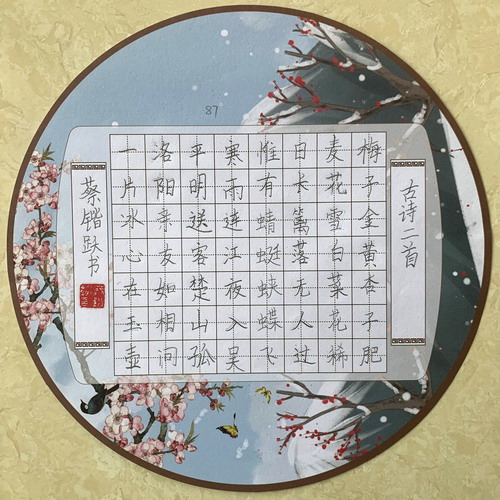 87
古诗二首
梅子金黄杏子肥
麦花雪白菜花稀
日长篱落无人过
惟有蜻蜓蛱蝶飞
寒雨连江夜入吴
平明送客楚山孤
洛阳亲友如相问
一片冰心在玉壶
蔡锴跃书